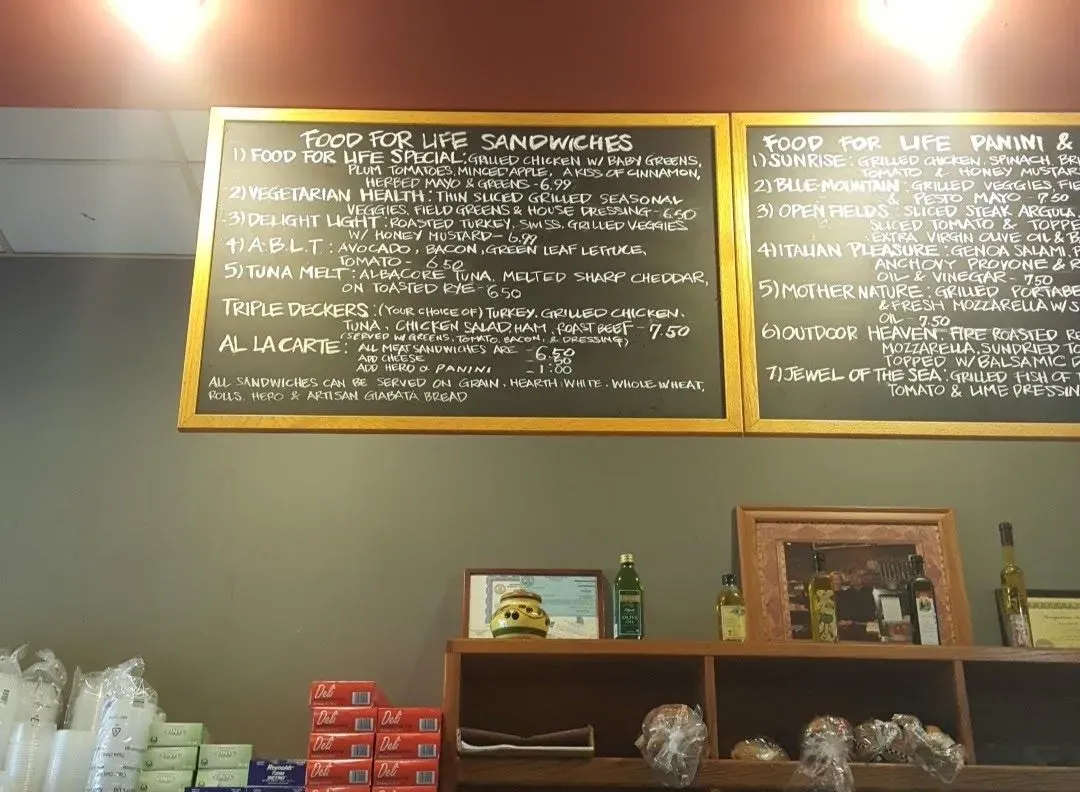 FOOD FOR LIFE SANDWICHES
1) FOOD FOR LIFE SPECIAL: GRILLED CHICKEN W/ BABY GREENS,
PLUM TOMATOES, MINCED APPLE, A KISS OF CINNAMON,
HERBED MAYO & GREENS - 6.99
2) VEGETARIAN HEALTH: THIN SLICED GRILLED SEASONAL
VEGGIES, FIELD GREENS & HOUSE DRESSING - 6.50
3) DELIGHT LIGHT: ROASTED TURKEY, SWISS, GRILLED VEGGIES
W/ HONEY MUSTARD - 6.99
4) A.B.L.T: AVOCADO, BACON, GREEN LEAF LETTUCE,
TOMATO - 6.50
5) TUNA MELT: ALBACORE TUNA, MELTED SHARP CHEDDAR,
ON TOASTED RYE - 6.50
TRIPLE DECKERS: (YOUR CHOICE OF) TURKEY, GRILLED CHICKEN,
TUNA, CHICKEN SALAD, HAM, ROAST BEEF - 7.50
(SERVED W/ GREENS, TOMATO, BACON, & DRESSING)
AL LA CARTE: ALL MEAT SANDWICHES ARE - 6.50
ADD CHEESE - .60
ADD HERO or PANINI - 1.00
ALL SANDWICHES CAN BE SERVED ON GRAIN, HEARTH WHITE, WHOLE WHEAT,
ROLLS, HERO & ARTISAN GIABATA BREAD
FOOD FOR LIFE PANINI &
1) SUNRISE: GRILLED CHICKEN, SPINACH, BRI
TOMATO & HONEY MUSTAR
2) BLUE MOUNTAIN: GRILLED VEGGIES, FIE
& PESTO MAYO - 7.50
3) OPEN FIELDS: SLICED STEAK ARGULA,
SLICED TOMATO & TOPPE
EXTRA VIRGIN OLIVE OIL & B
4) ITALIAN PLEASURE: GENOA SALAMI, P
ANCHOVY PROVONE & R
OIL & VINEGAR - 7.50
5) MOTHER NATURE: GRILLED PORTABE
& FRESH MOZZARELLA W/ S
OIL - 7.50
6) OUTDOOR HEAVEN: FIRE ROASTED RE
MOZZARELLA, SUNDRIED TO
TOPPED W/ BALSAMIC D
7) JEWEL OF THE SEA: GRILLED FISH OF T
TOMATO & LIME DRESSIN
OLIVE OIL
Deli
Deli
Deli
Deli
Deli
Deli
Deli
Reynolds